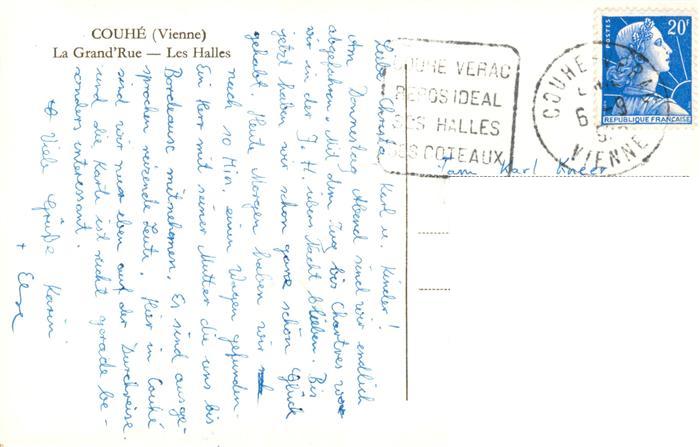 COUHÉ (Vienne)
La Grand'Rue — Les Halles
Liebe Christa, Karl u. Kinder!
Am Donnerstag Abend sind wir endlich
abgefahren. Mit dem Zug bis Chartres wo
wir in der J. H. übernacht blieben. Bis
jetzt haben wir schon ganz schön Glück
gehabt. Heute Morgen haben wir
nach 10 Min. einen Wagen gefunden.
Ein Herr mit seiner Mutter die uns bis
Bordeaux mitnehmen. Es sind ausge-
sprochen reizende Leute. Hier in Couhé
sind wir nur eben auf der Durchreise
und die Karte ist nicht gerade be-
sonders interessant.
Viele Grüße Karin
+ Elsa
COUHE VERAC
REPOS IDEAL
SES HALLES
SES COTEAUX
COUHE
6 - 8
VIENNE
POSTES
20F
REPUBLIQUE FRANÇAISE
Fam Karl Kneer